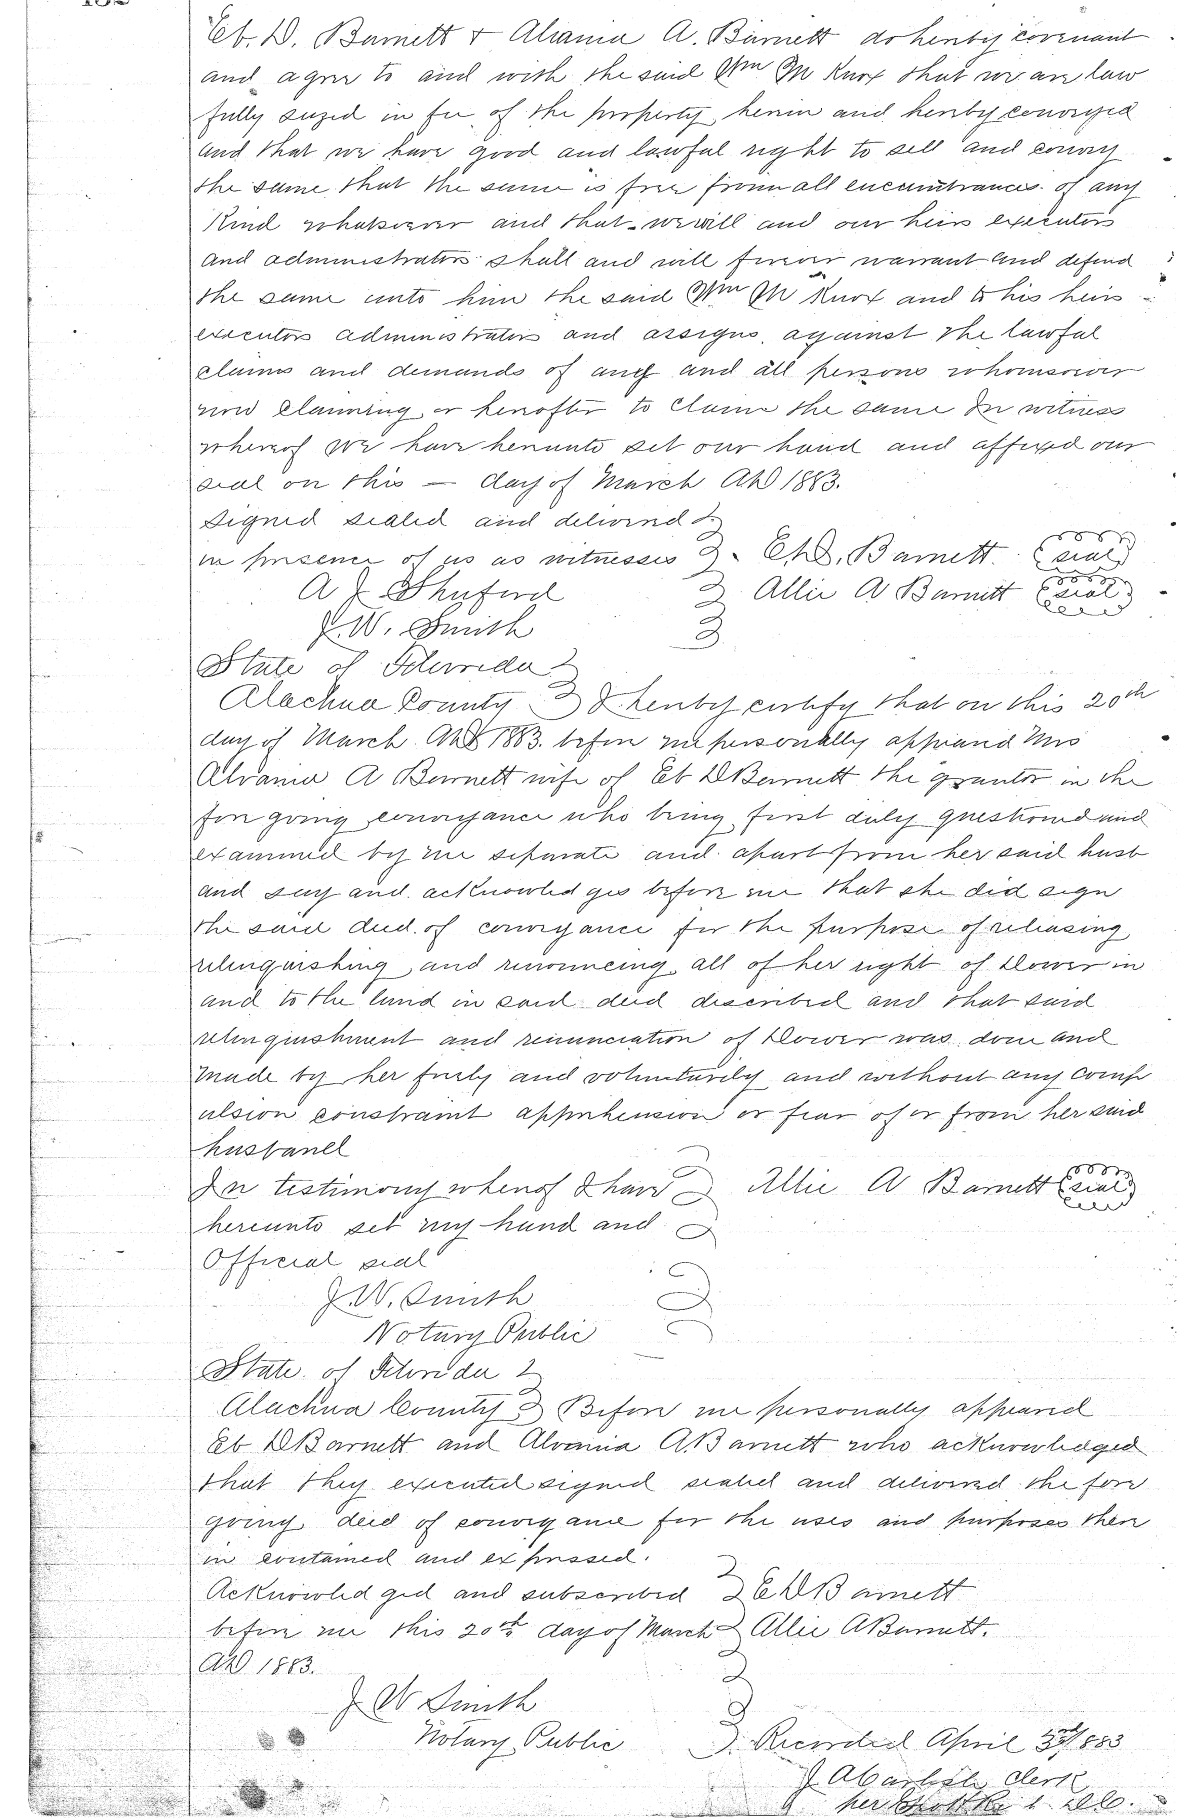 Eb. D. Barnett & Alvania A. Barnett do hereby covenant
and agree to and with the said Wm M Knox that we are law
fully seized in fee of the property herein and hereby conveyed
and that we have good and lawful right to sell and convey
the same that the same is free from all encumbrances of any
Kind whatsoever and that we will and our heirs executors
and administrators shall and will forever warrant and defend
the same unto him the said Wm M Knox and to his heirs
executors administrators and assigns against the lawful
claims and demands of any and all persons whomsoever
now claiming or hereafter to claim the same In witness
whereof we have hereunto set our hand and affixed our
seal on this — day of March AD 1883.
Signed sealed and delivered
in presence of us as witnesses Eb D. Barnett seal
A J Shuford Allie A Barnett seal
J. W. Smith
State of Florida
Alachua County I hereby certify that on this 20th
day of March AD 1883. before me personally appeared Mrs
Alvania A Barnett wife of Eb D Barnett the grantor in the
fore going conveyance who being first duly questioned and
examined by me separate and apart from her said husb
and say and acknowledges before me that she did sign
the said deed of conveyance for the purpose of releasing
relinquishing and renouncing all of her right of Dower in
and to the land in said deed described and that said
relinquishment and renunciation of Dower was done and
made by her freely and voluntarily and without any comp
ulsion constraint apprehension or fear of or from her said
husband
In testimony whereof I have Allie A Barnett seal
hereunto set my hand and
Official seal
J. W. Smith
Notary Public
State of Florida
Alachua County Before me personally appeared
Eb D Barnett and Alvania A Barnett who acknowledged
that they executed signed sealed and delivered the fore
going deed of conveyance for the uses and purposes there
in contained and expressed.
Acknowledged and subscribed E D Barnett
before me this 20th day of March Allie A Barnett.
AD 1883.
J W Smith
Notary Public Recorded April 3rd 1883
J A Carlisle Clerk
per